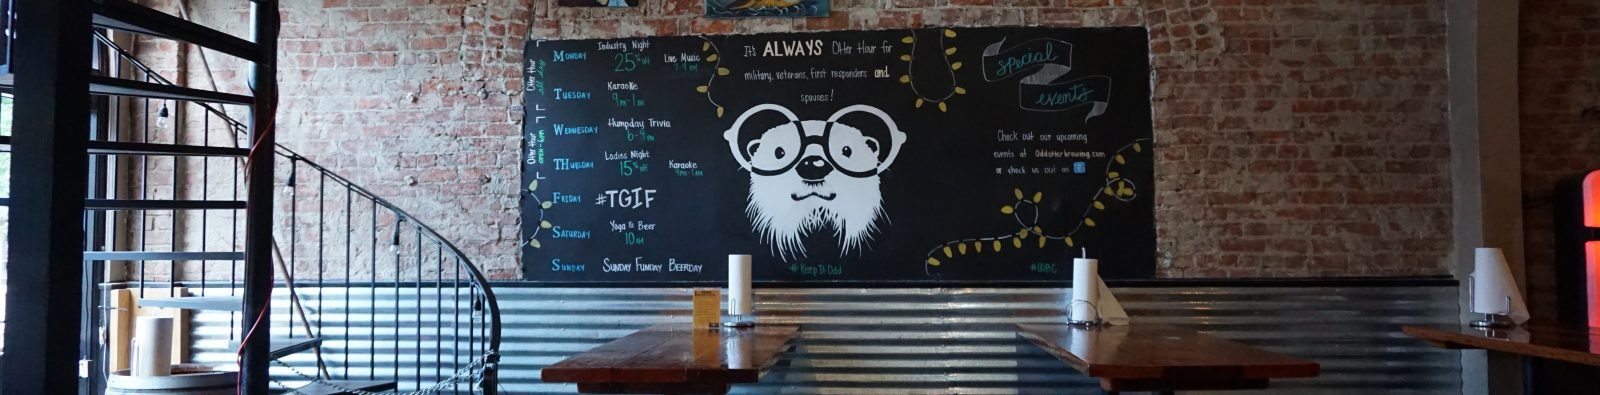 Otter Hour
all day
Otter Hour
open-6pm
Monday
Industry Night
25% off
Live Music
Tuesday
Karaoke
9pm-1am
Wednesday
Humpday Trivia
6-9pm
Thursday
Ladies Night
15% off
Karaoke
9pm-1am
Friday
#TGIF
Saturday
Yoga & Beer
10am
Sunday
Sunday Funday Beerday
It's ALWAYS Otter Hour for
military, veterans, first responders and
spouses!
#Keep It Odd
special
events
Check out our upcoming
events at Oddotterbrewing.com
or check us out on f
#OOBC